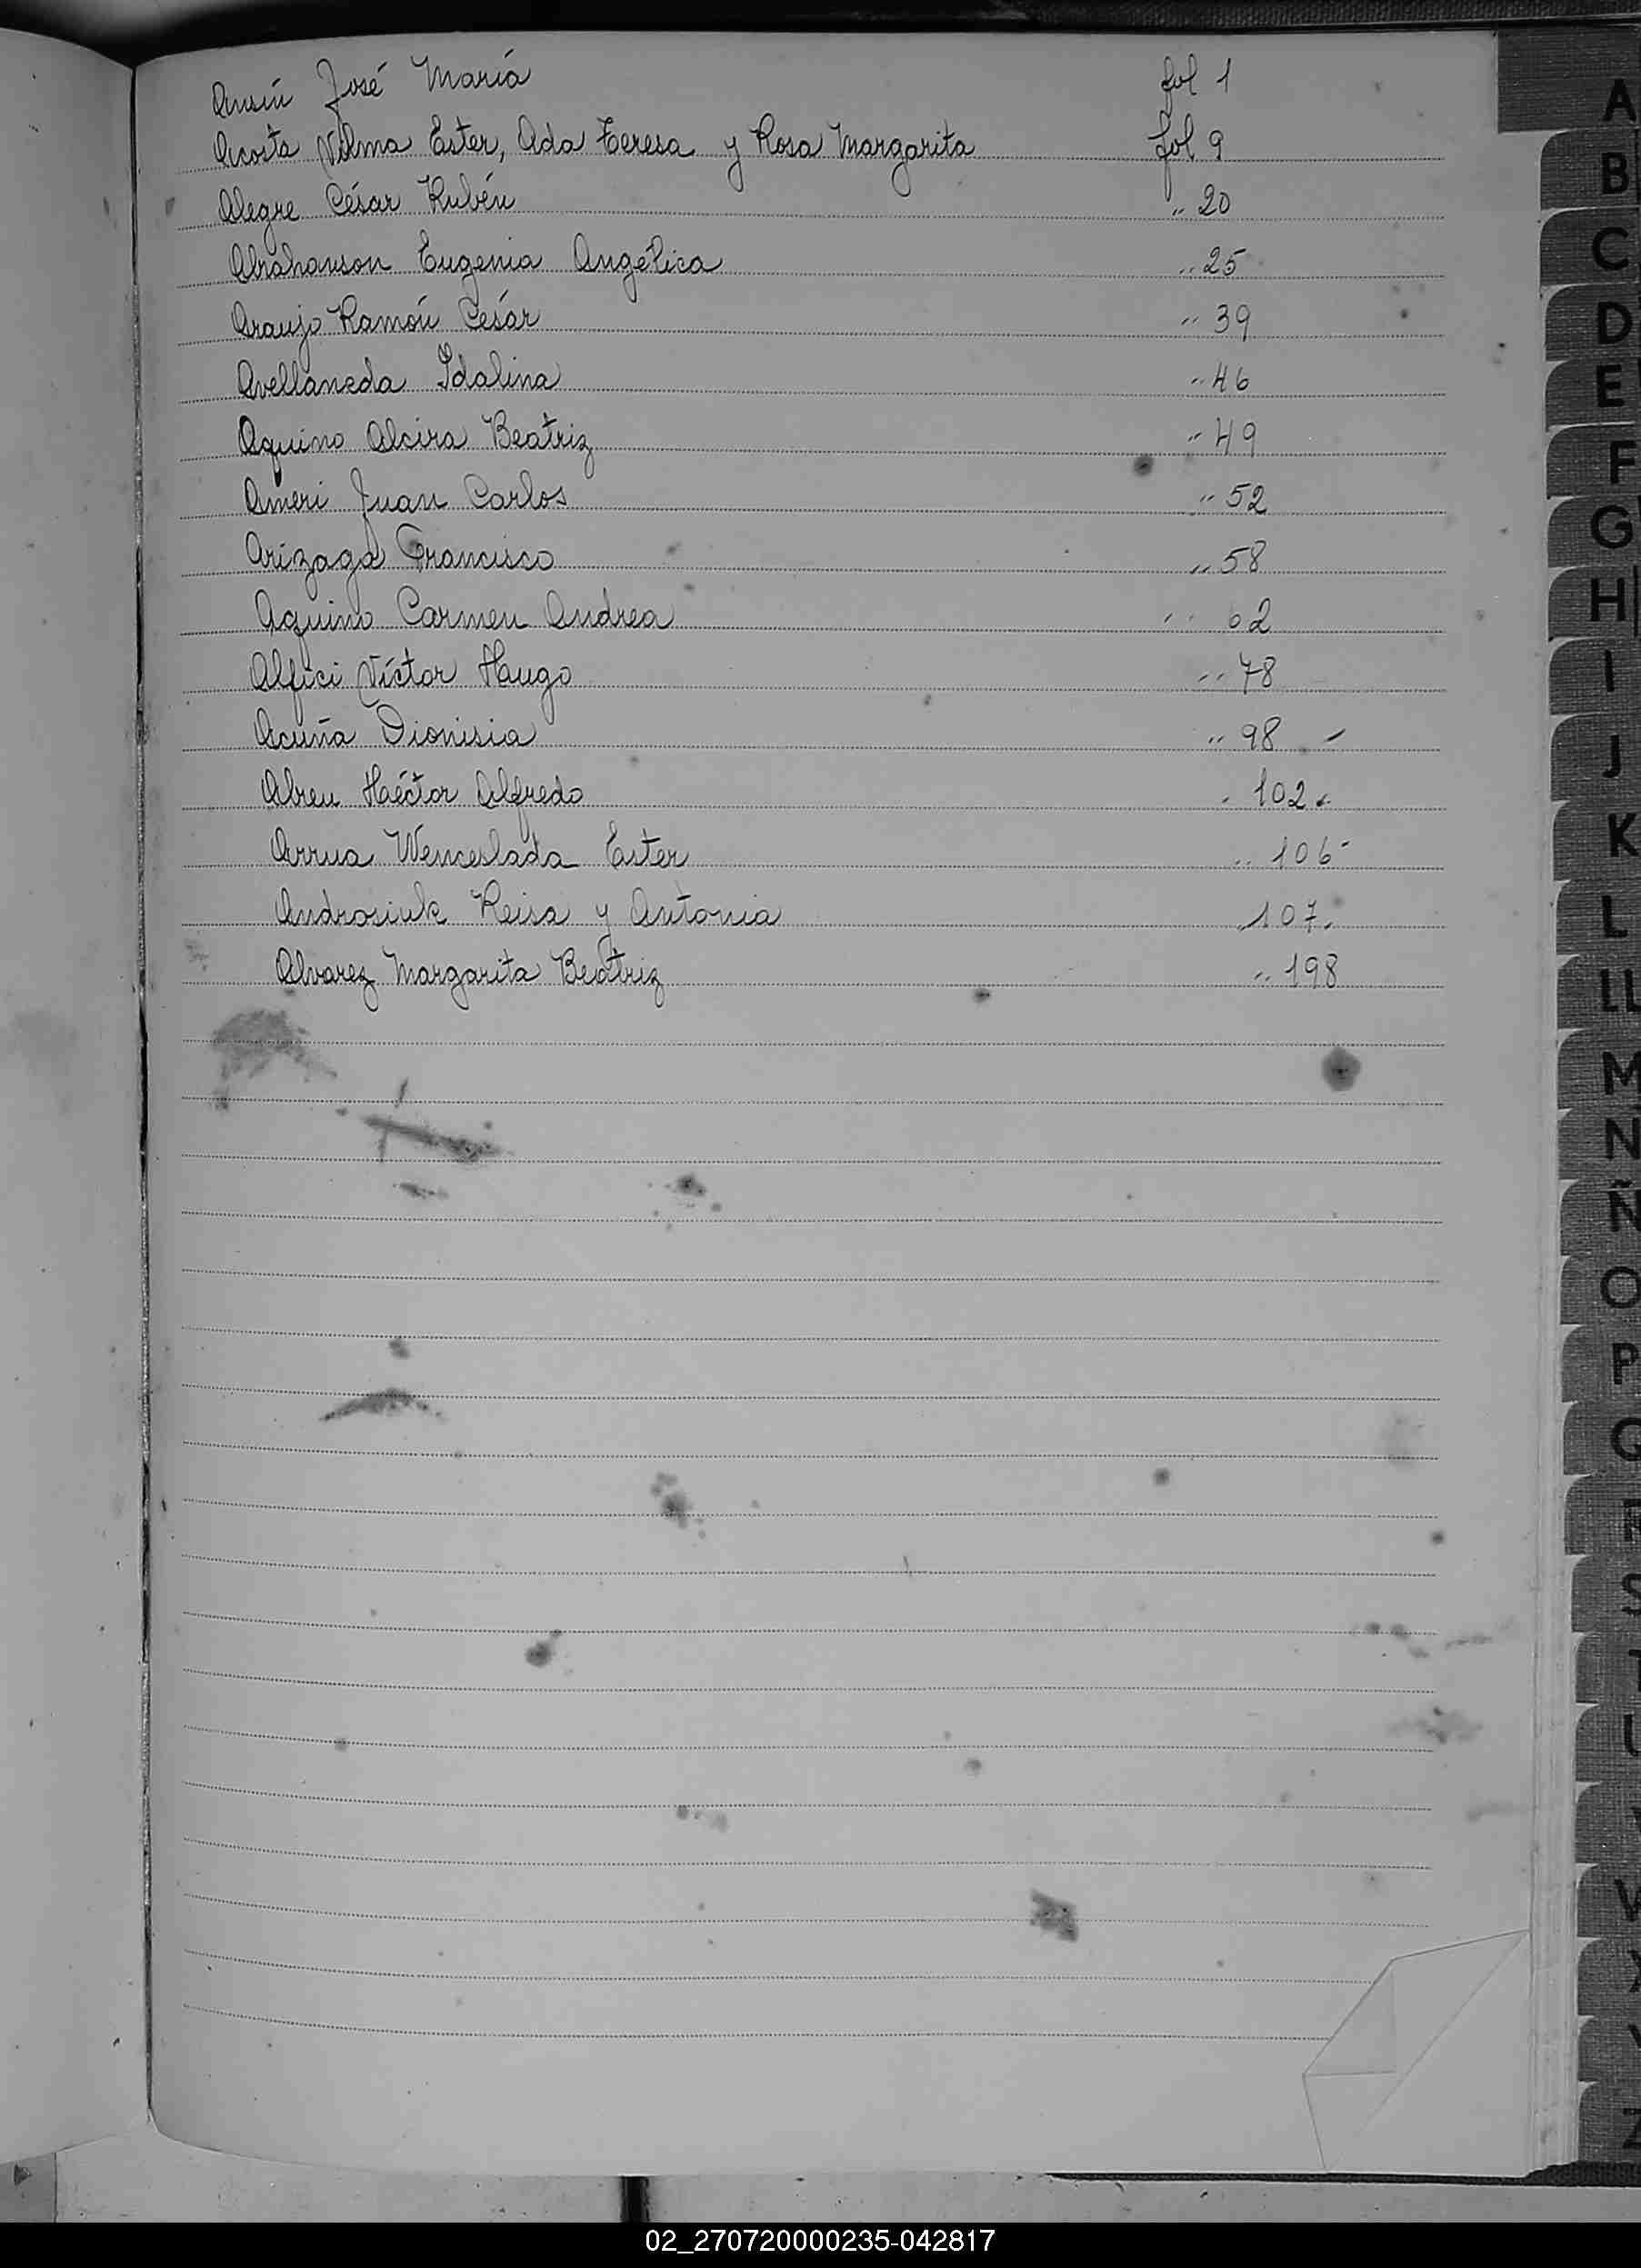 Ansín José María fol 1
Acosta Vilma Ester, Ada Teresa y Rosa Margarita fol 9
Alegre César Rubén " 20
Abrahamson Eugenia Angélica " 25
Araujo Ramón César " 39
Avellaneda Idalina " 46
Aquino Alcira Beatriz " 49
Ameri Juan Carlos " 52
Arízaga Francisco " 58
Aquino Carmen Andrea " 62
Alfici Víctor Hugo " 78
Acuña Dionisia " 98
Abreu Héctor Alfredo " 102
Arrua Wenceslada Ester " 106
Androsiuk Reisa y Antonia " 107
Alvarez Margarita Beatriz " 198
A
B
C
D
E
F
G
H
I
J
K
L
LL
M
N
Ñ
O
P
Q
R
S
T
U
V
X
Z
02_270720000235-042817